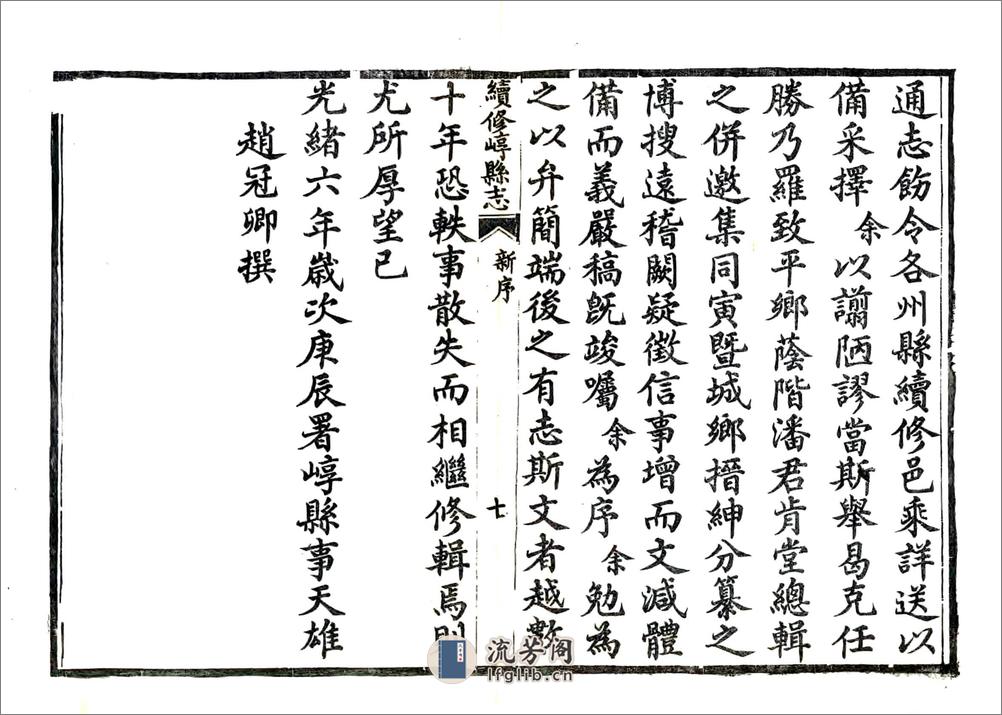 通志飭令各州縣續修邑乘詳送以
備采擇余以譾陋謬當斯舉曷克任
勝乃羅致平鄉蔭階潘君肯堂總輯
之併邀集同寅暨城鄉搢紳分纂之
博搜遠稽闕疑徵信事增而文減體
備而義嚴稿既竣囑余為序余勉為
之以弁簡端後之有志斯文者越數
續修崞縣志
新序
七
十年恐軼事散失而相繼修輯焉則
尤所厚望已
光緒六年歲次庚辰署崞縣事天雄
趙冠卿撰
流芳阁
lfglib.cn